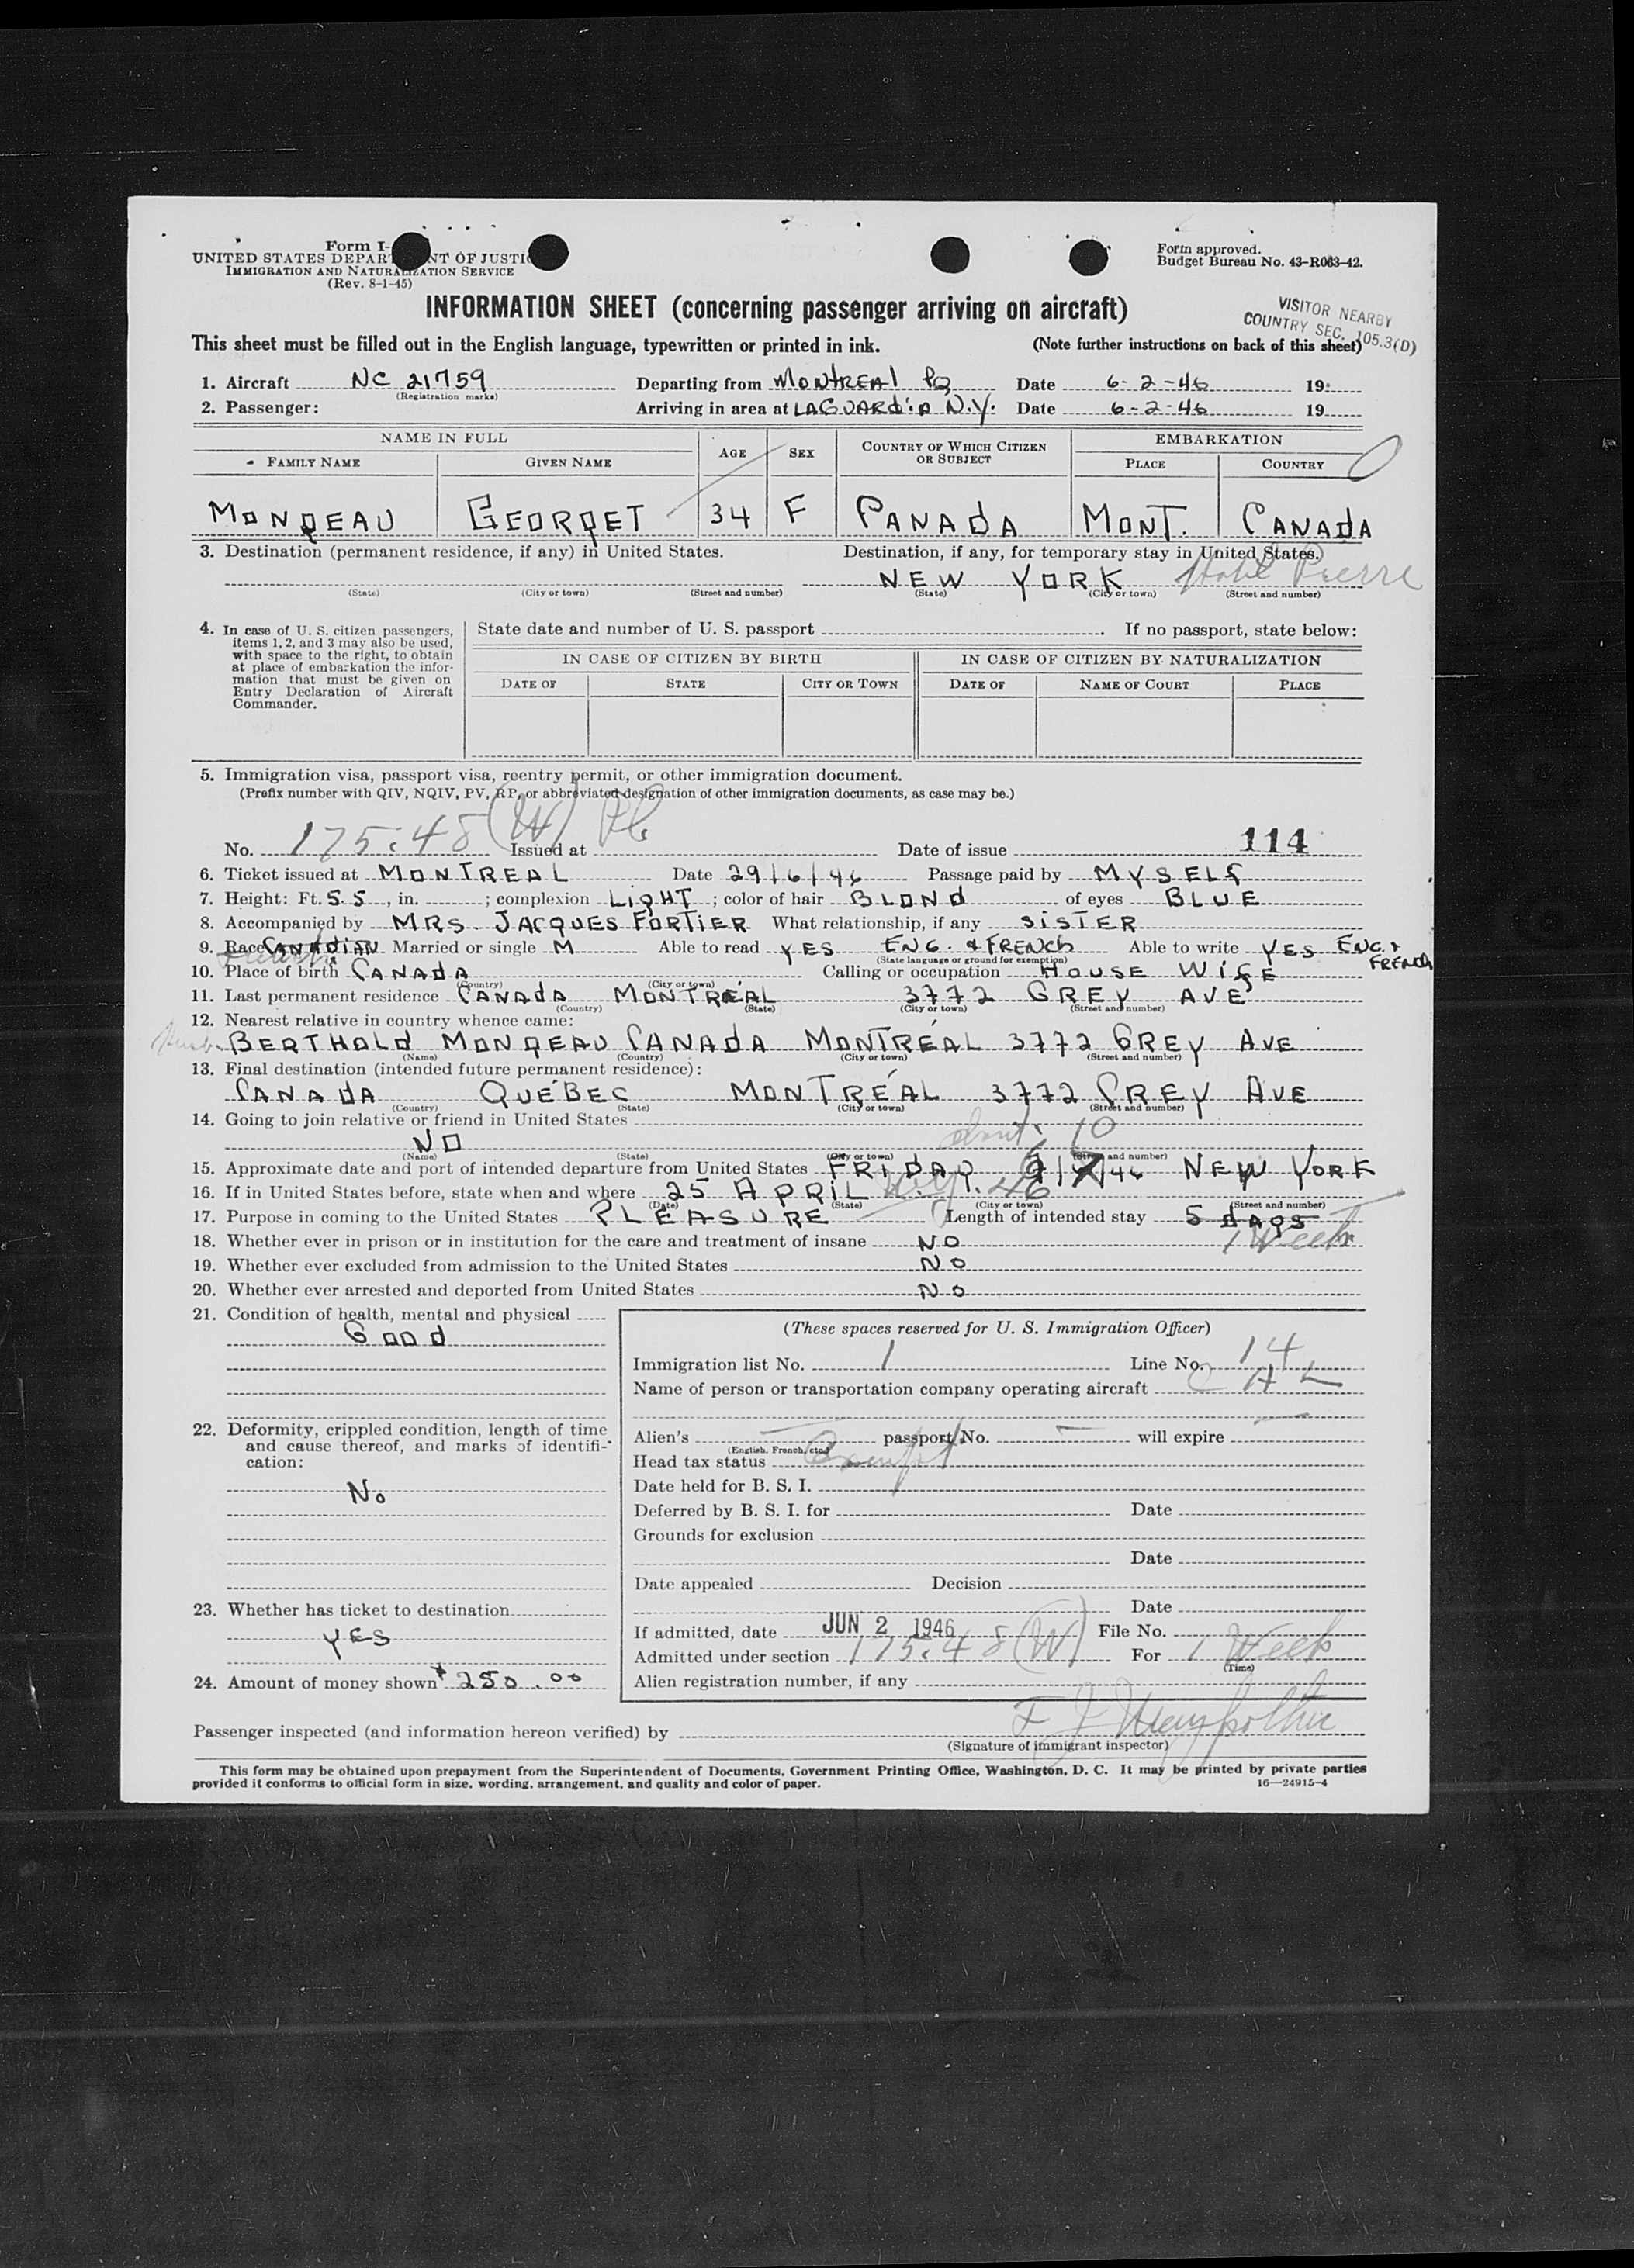 Form I-
UNITED STATES DEPARTMENT OF JUSTICE
IMMIGRATION AND NATURALIZATION SERVICE
(Rev. 8-1-45)
Form approved.
Budget Bureau No. 43-R063-42.
INFORMATION SHEET (concerning passenger arriving on aircraft)
VISITOR NEARBY
COUNTRY SEC. 105.3(D)
This sheet must be filled out in the English language, typewritten or printed in ink. (Note further instructions on back of this sheet)
1. Aircraft NC 21759 Departing from MONTREAL PQ Date 6-2-46 19
(Registration marks)
2. Passenger: Arriving in area at LAGUARDIA N.Y. Date 6-2-46 19
NAME IN FULL AGE SEX COUNTRY OF WHICH CITIZEN OR SUBJECT EMBARKATION
FAMILY NAME GIVEN NAME PLACE COUNTRY
MONGEAU GEORGET 34 F CANADA MONT. CANADA
3. Destination (permanent residence, if any) in United States. Destination, if any, for temporary stay in United States.
NEW YORK Hotel Pierre
(State) (City or town) (Street and number) (State) (City or town) (Street and number)
4. In case of U. S. citizen passengers, items 1, 2, and 3 may also be used, with space to the right, to obtain at place of embarkation the information that must be given on Entry Declaration of Aircraft Commander.
State date and number of U. S. passport . If no passport, state below:
IN CASE OF CITIZEN BY BIRTH IN CASE OF CITIZEN BY NATURALIZATION
DATE OF STATE CITY OR TOWN DATE OF NAME OF COURT PLACE
5. Immigration visa, passport visa, reentry permit, or other immigration document.
(Prefix number with QIV, NQIV, PV, RP, or abbreviated designation of other immigration documents, as case may be.)
No. 175.48 (W) Issued at Date of issue 114
6. Ticket issued at MONTREAL Date 29/6/46 Passage paid by MYSELF
7. Height: Ft. 5.5, in. ; complexion LIGHT; color of hair BLOND of eyes BLUE
8. Accompanied by MRS. JACQUES FORTIER What relationship, if any SISTER
9. Race CANADIAN Married or single M Able to read YES ENG. & FRENCH Able to write YES ENG. & FRENCH
French (State language or ground for exemption)
10. Place of birth CANADA Calling or occupation HOUSE WIFE
(Country) (City or town)
11. Last permanent residence CANADA MONTRÉAL 3772 GREY AVE
(Country) (State) (City or town) (Street and number)
12. Nearest relative in country whence came:
BERTHOLD MONGEAU CANADA MONTRÉAL 3772 GREY AVE
(Name) (Country) (City or town) (Street and number)
13. Final destination (intended future permanent residence):
CANADA QUÉBEC MONTRÉAL 3772 GREY AVE
(Country) (State) (City or town) (Street and number)
14. Going to join relative or friend in United States
NO
(Name) (State) (City or town) (Street and number)
15. Approximate date and port of intended departure from United States FRIDAY 46 NEW YORK
16. If in United States before, state when and where 25 APRIL 46
(Date) (State) (City or town) (Street and number)
17. Purpose in coming to the United States PLEASURE Length of intended stay 5 days
1 Week
18. Whether ever in prison or in institution for the care and treatment of insane NO
19. Whether ever excluded from admission to the United States NO
20. Whether ever arrested and deported from United States NO
21. Condition of health, mental and physical
Good
22. Deformity, crippled condition, length of time and cause thereof, and marks of identification:
No
23. Whether has ticket to destination
YES
24. Amount of money shown $ 250.00
(These spaces reserved for U. S. Immigration Officer)
Immigration list No. 1 Line No. 14
Name of person or transportation company operating aircraft C A L
Alien's passport No. will expire
(English, French, etc.)
Head tax status Exempt
Date held for B. S. I.
Deferred by B. S. I. for Date
Grounds for exclusion
Date
Date appealed Decision
Date
If admitted, date JUN 2 1946 File No.
Admitted under section 175.48 (W) For 1 Week
(Time)
Alien registration number, if any
Passenger inspected (and information hereon verified) by
(Signature of immigrant inspector)
This form may be obtained upon prepayment from the Superintendent of Documents, Government Printing Office, Washington, D. C. It may be printed by private parties
provided it conforms to official form in size, wording, arrangement, and quality and color of paper. 16—24915-4